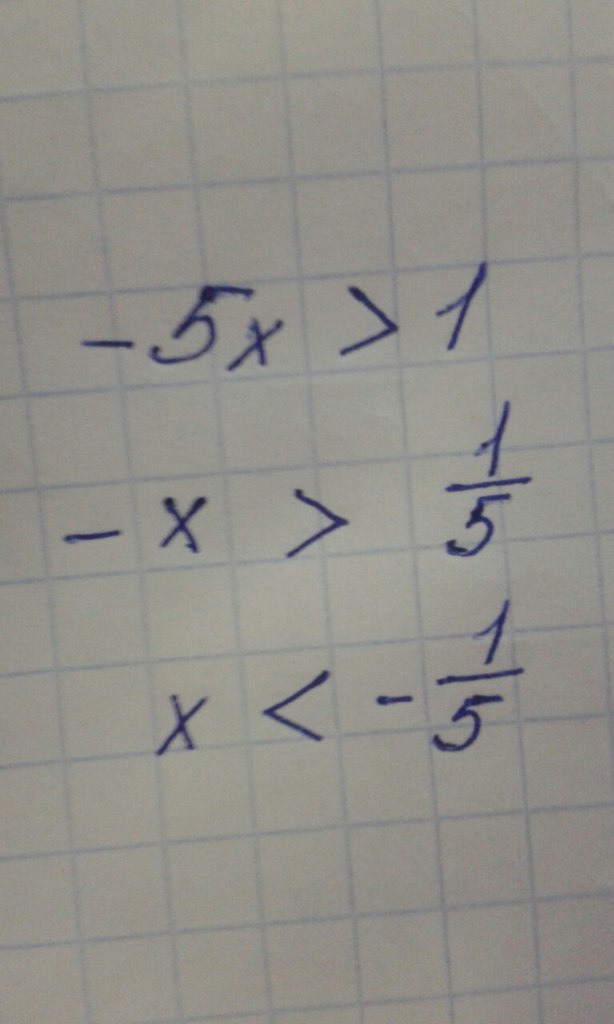 -5x > 1
-x > 1/5
x < -1/5